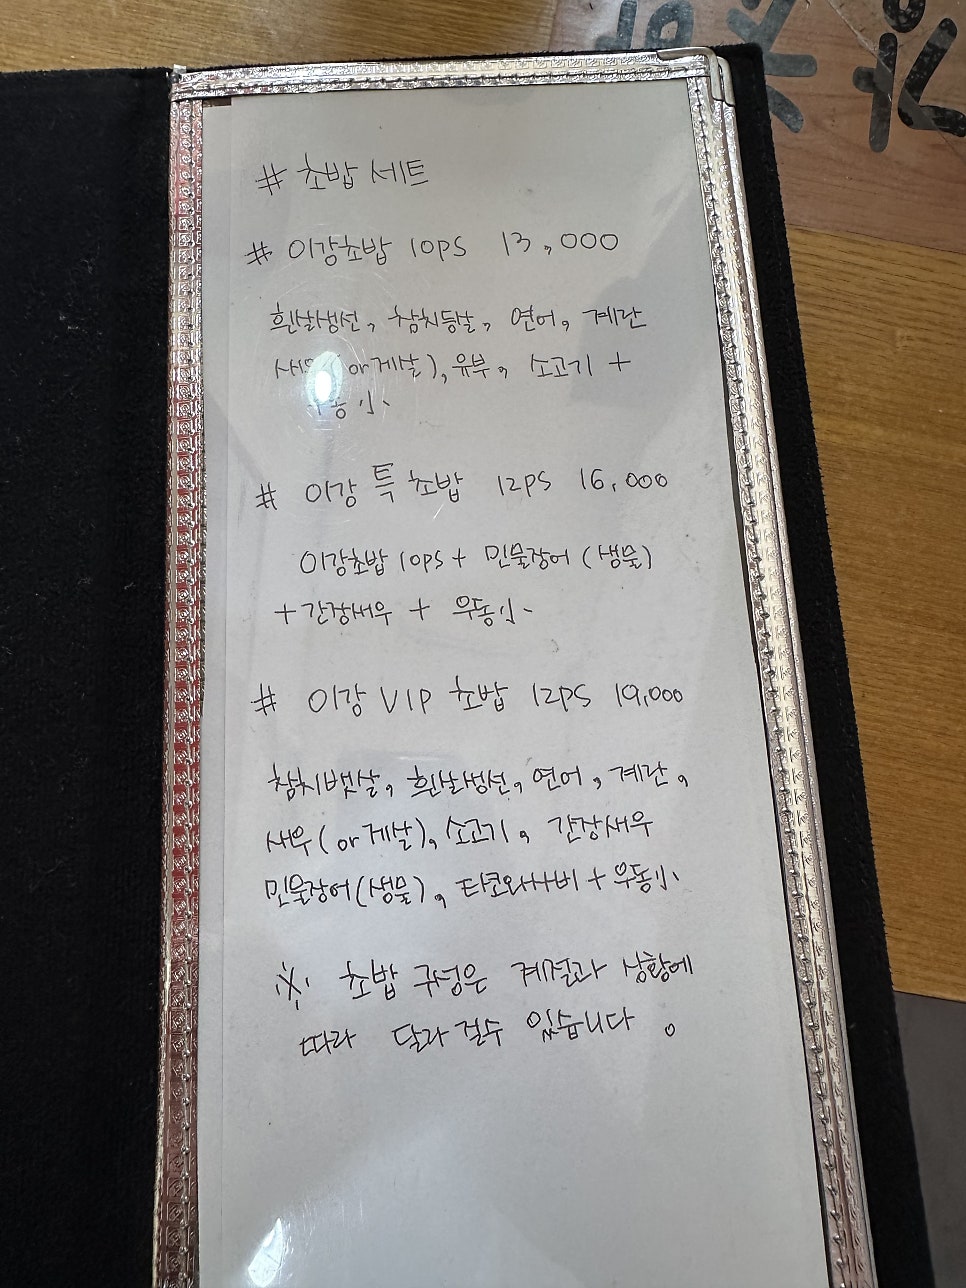 # 초밥 세트
# 이강초밥 10PS 13,000
흰살생선, 참치등살, 연어, 계란
새우(or게살), 유부, 소고기 +
우동小
# 이강 특 초밥 12PS 16,000
이강초밥 10PS + 민물장어 (생물)
+ 간장새우 + 우동小
# 이강 VIP 초밥 12PS 19,000
참치뱃살, 흰살생선, 연어, 계란,
새우(or게살), 소고기, 간장새우
민물장어(생물), 타코와사비 + 우동小
※ 초밥 구성은 계절과 상황에
따라 달라 질수 있습니다.